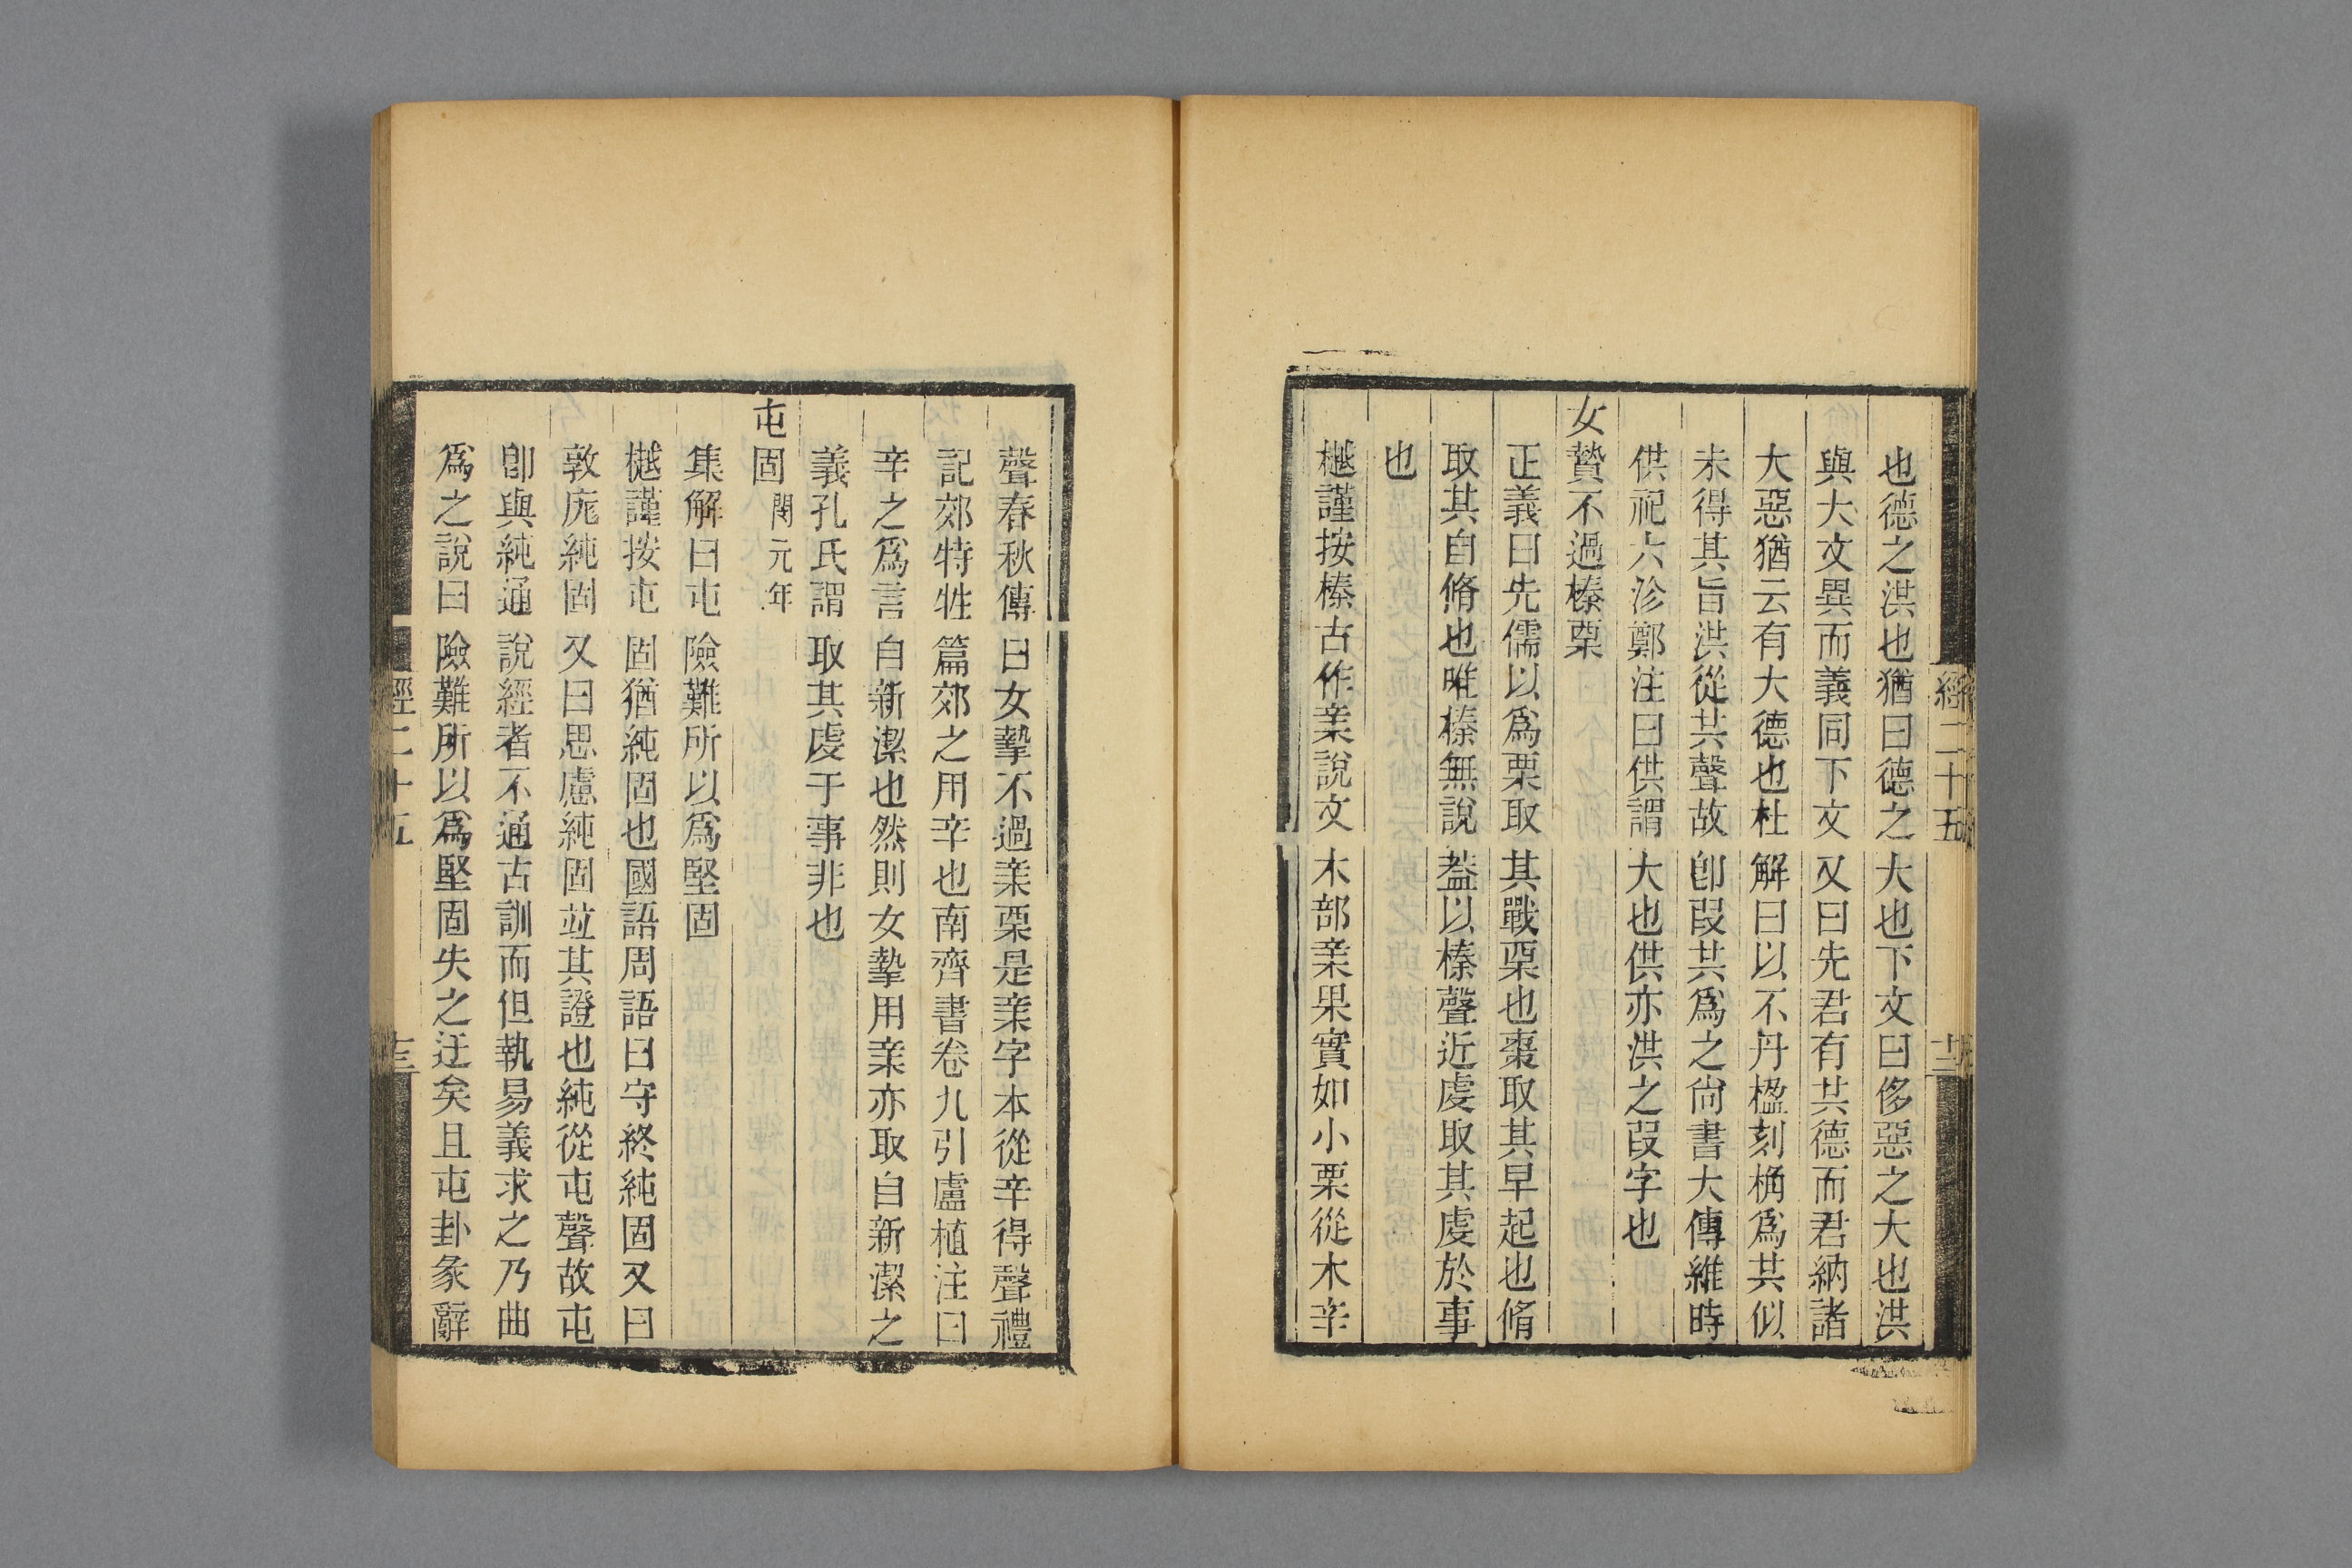 也德之洪也猶曰德之大也下文曰侈惡之大也洪
與大文異而義同下文又曰先君有共德而君納諸
大惡猶云有大德也杜解曰以不丹楹刻桷爲共似
未得其旨洪從共聲故卽叚共爲之尙書大傳維時
供祀六沴鄭注曰供謂大也供亦洪之叚字也
女贄不過榛栗
正義曰先儒以爲栗取其戰栗也棗取其早起也脩
取其自脩也唯榛無說葢以榛聲近虔取其虔於事
也
樾謹按榛古作亲說文木部亲果實如小栗從木辛
經二十五
十二
聲春秋傳曰女摯不過亲栗是亲字本從辛得聲禮
記郊特牲篇郊之用辛也南齊書卷九引盧植注曰
辛之爲言自新潔也然則女摯用亲亦取自新潔之
義孔氏謂取其虔于事非也
屯固 閔元年
集解曰屯險難所以爲堅固
樾謹按屯固猶純固也國語周語曰守終純固又曰
敦庬純固又曰思慮純固竝其證也純從屯聲故屯
卽與純通說經者不通古訓而但執易義求之乃曲
爲之說曰險難所以爲堅固失之迂矣且屯卦彖辭
經二十五
十三